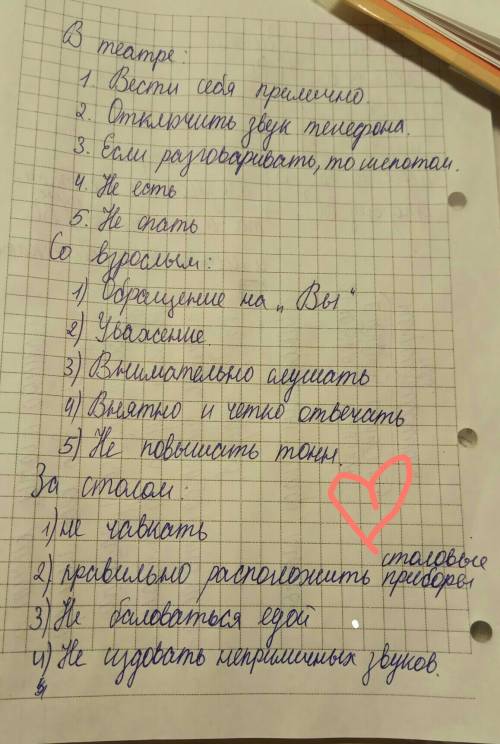 В театре:
1. Вести себя прилично.
2. Отключить звук телефона.
3. Если разговаривать, то шепотом.
4. Не есть
5. Не спать
Со взрослым:
1) Обращение на „Вы"
2) Уважение.
3) Внимательно слушать
4) Внятно и четко отвечать
5) Не повышать тонн.
За столом:
1) не чавкать
2) правильно расположить столовые приборы
3) Не баловаться едой
4) Не издовать неприличных звуков.